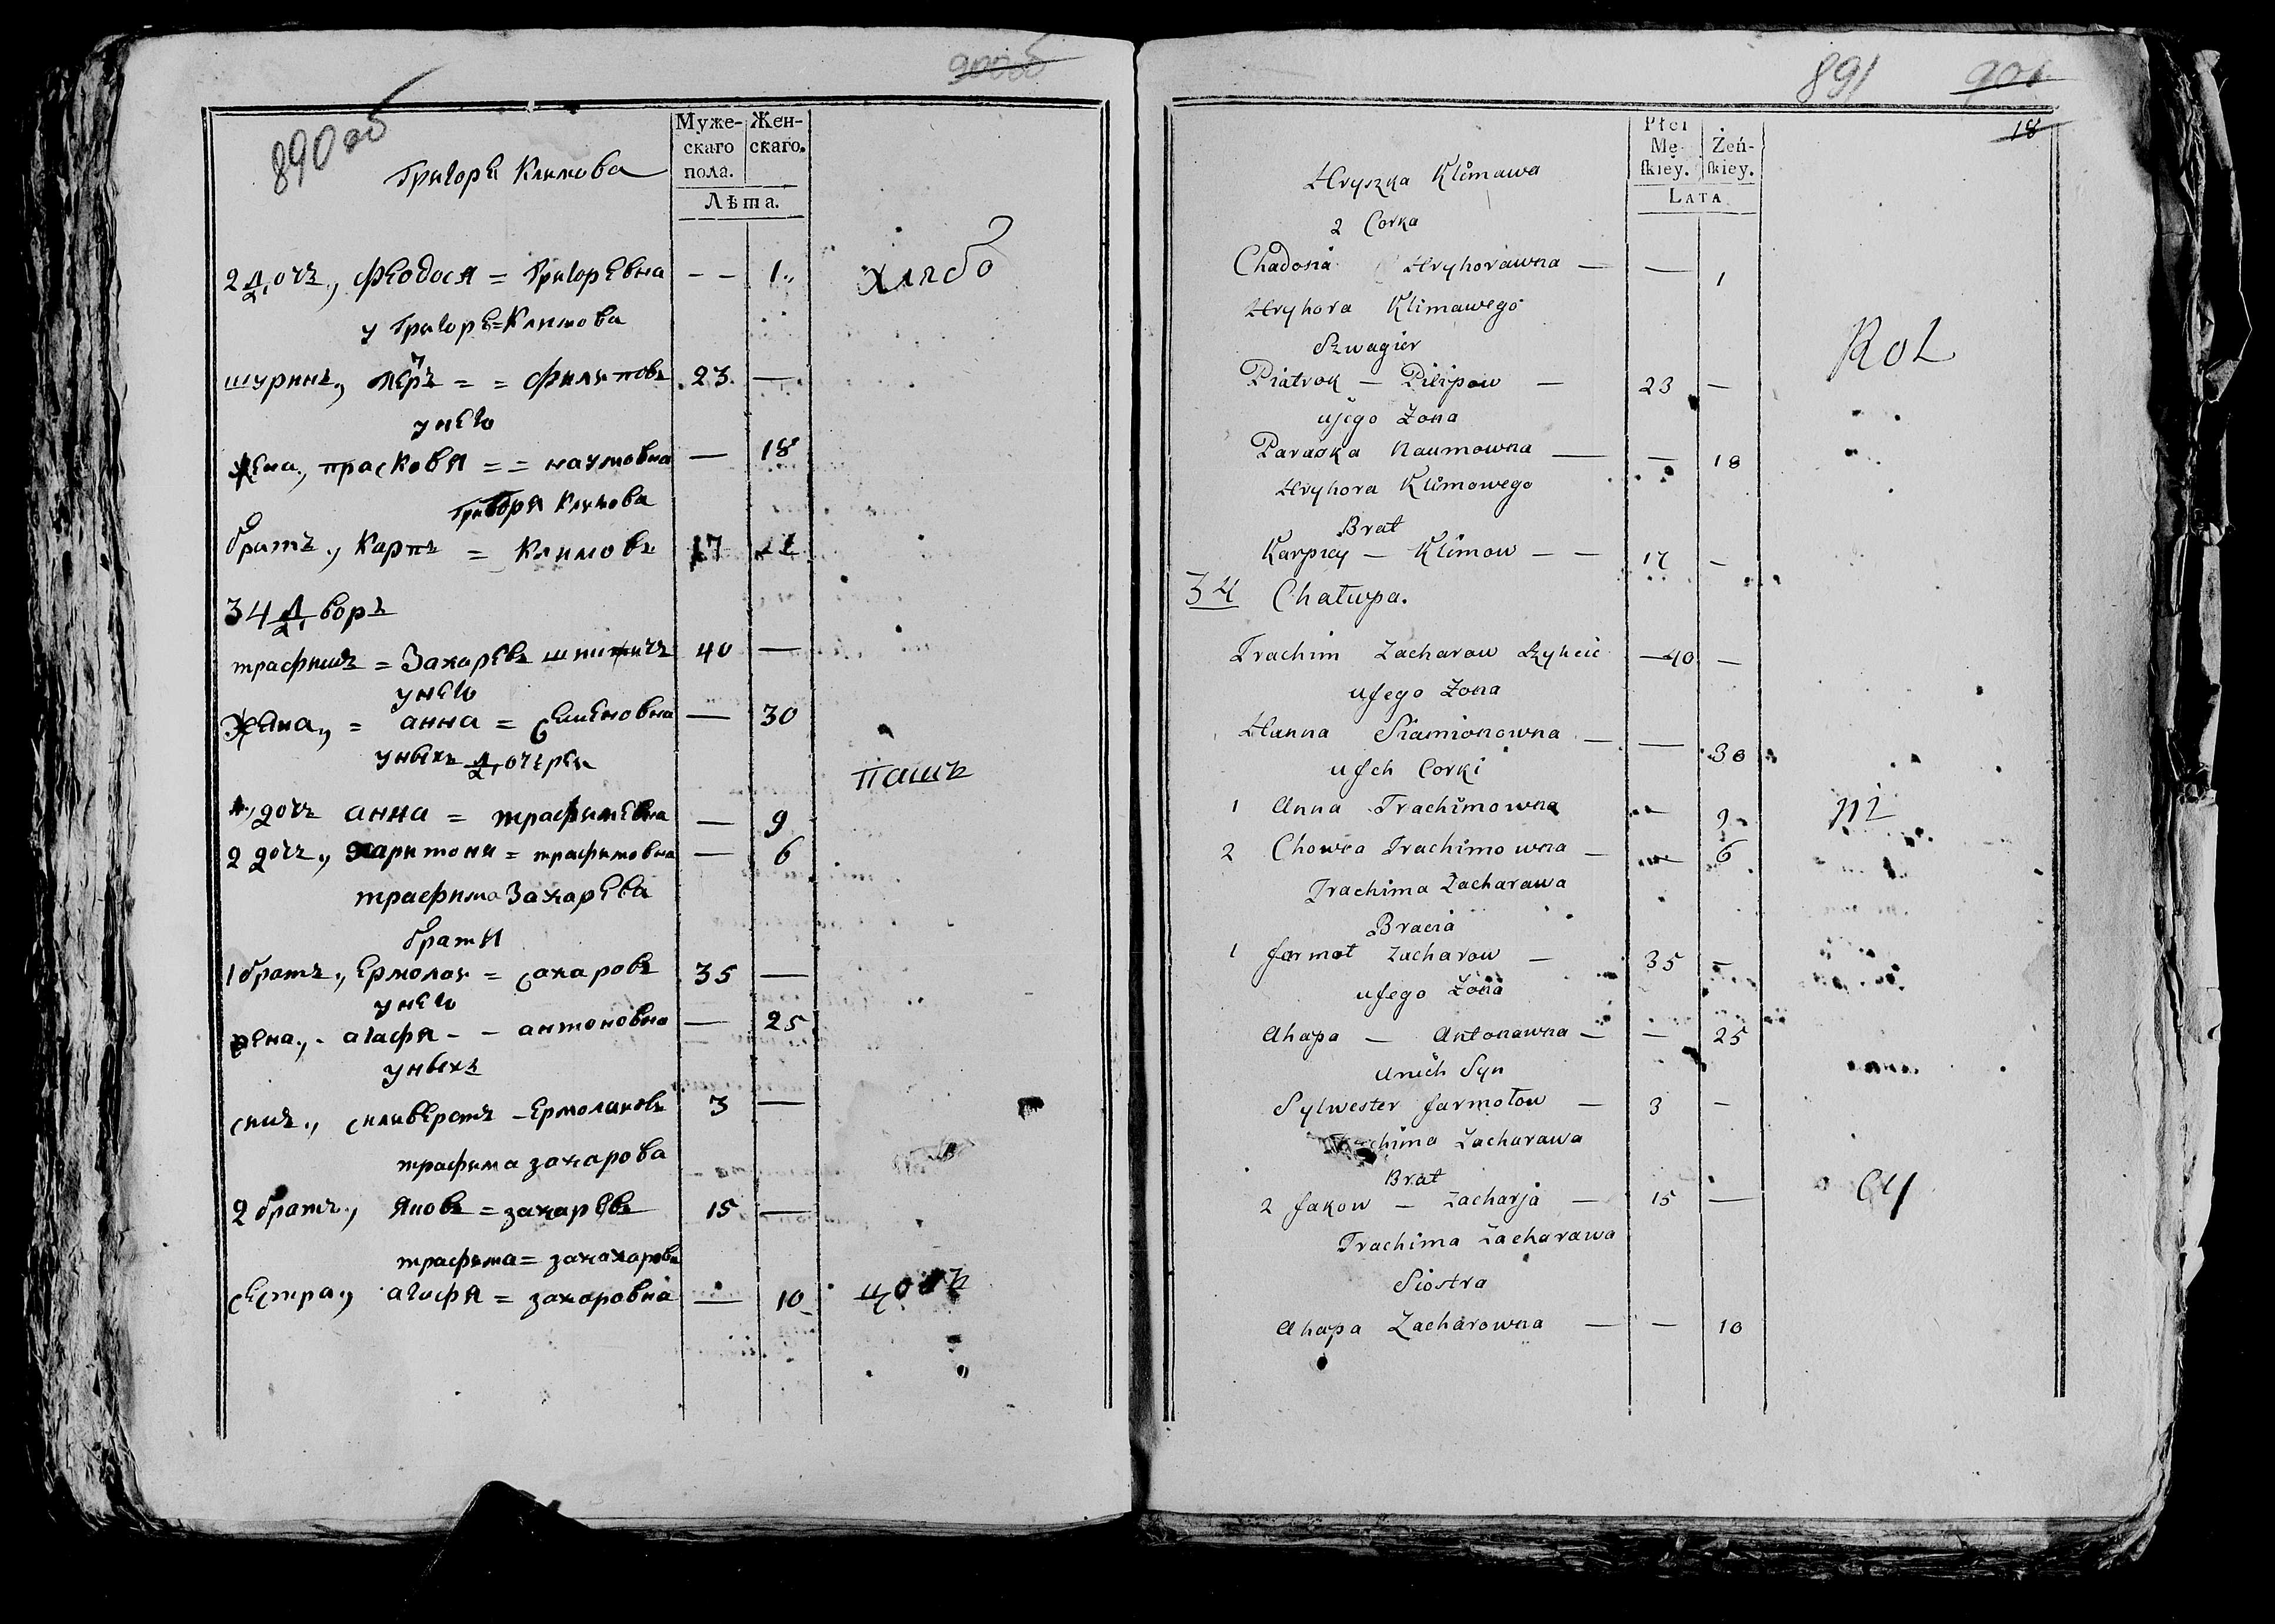 900об
890 об
Муже-скаго пола. Жен-скаго.
Лѣта.
Григорья Климова
2 дочь, Феодося = Григорьевна - - 1
хлябо
у Григоре = Климова
шуринъ, Петръ = = Филиповъ 23 —
у нево
жена, прасковя = = наумовна — 18
Григоря Климова
братъ, Карпъ = Климовъ 17
34 дворъ
трафимъ = Захаревъ 40 —
у нево
жена, = анна = Семеновна — 30
у ныхъ дочери
пашъ
1, дочь анна = трафимевна — 9
2 дочь, Харитони = трафимовна — 6
трафима Захарева
братя
1 братъ, Ермолаи = Сахаровъ 35 —
у нево
жена, - агафя - - антоновна — 25
у ныхъ
синъ, силивератъ - Ермолаиовъ 3 —
трафима захарова
2 братъ, Яковъ = захаревъ 15 —
трафима = захахарова
сестра, агафя = захаровна — 10
891 901
18
Płci
Mę-skiey. Żeń-skiey.
LATA
Hryszka Klimawa
2 Corka
Chadosia Hryhorawna — — 1
Hryhora Klimawego
Szwagier
Rol
Piatrok — Pilipow — 23 —
ujego Żona
Paraska Naumowna — — 18
Hryhora Klimowego
Brat
Karpiey — Klimow — — 17 —
34 Chałupa.
Trachim Zacharow — 40 —
ujego Żona
Hanna Siamionowna — — 30
ujch Corki
1 Anna Trachimowna — 9
ni
2 Chowra Trachimowna — — 6
Trachima Zacharawa
Bracia
1 Jarmoł Zacharow — 35 —
ujego Żona
Ahapa — Antonawna — — 25
unich Syn
Sylwester Jarmołow — 3 —
Trachima Zacharawa
Brat
2 Jakow — Zacharja — 15 —
cy
Trachima Zacharawa
Siostra
Ahapa Zacharowna — — 10